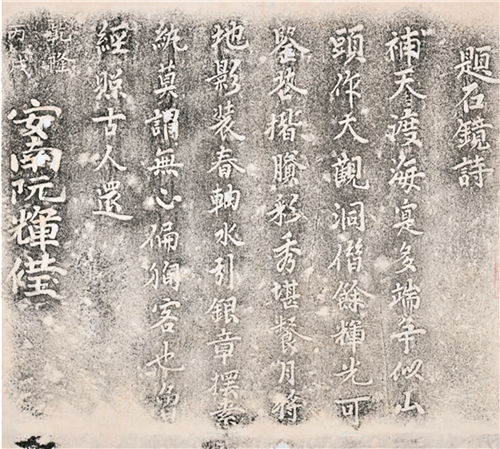 題石鏡詩
補天渡海寔多端爭似山
頭作大觀洞借餘輝光可
鑒苔揩賸彩秀堪餐月將
地影裝春軸水引銀章撲素
紈莫謂無心偏客也曾
經照古人還
乾隆
丙戌
安南阮輝𠐓